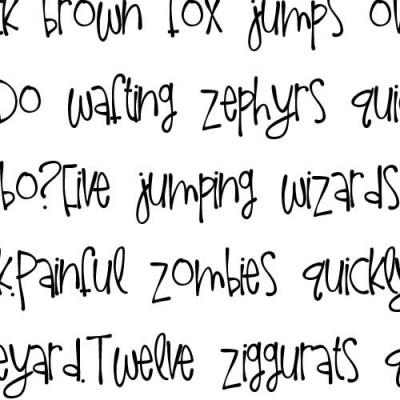 k brown fox jumps o
Do wafting zephyrs qui
bo?Five jumping wizards
k.Painful zombies quickly
eyard.Twelve ziggurats q